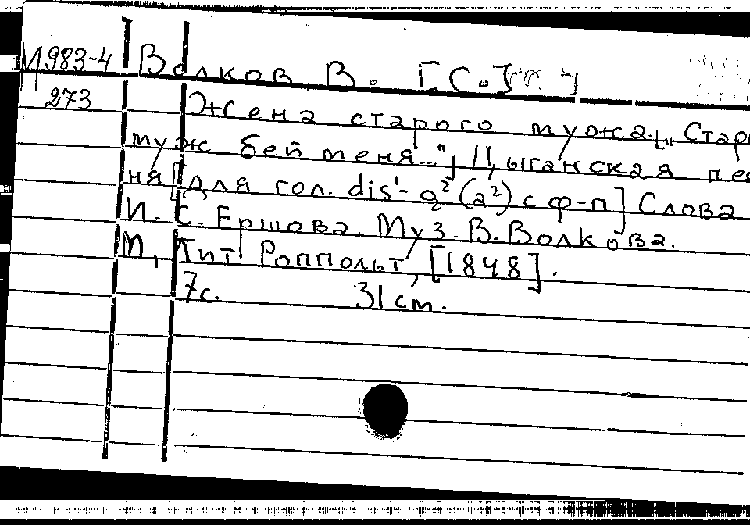 М 983-4
273
Волков В. Г.С.
Жена старого мужа. „Стар
муж бей меня..."; Цыганская пе
ня [Для гол. dis'- g²(a²) с ф-п] Слова
И. С. Ершова. Муз. В. Волкова.
М, Тит. Роппольт, [1848].
7с. 31 cm.